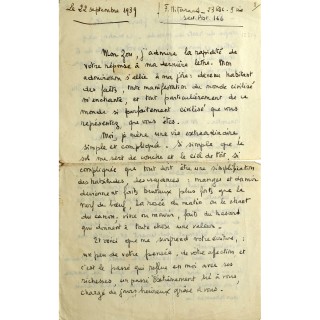 Le 22 septembre 1939
F. Mitterand - 23 RIC - 9 cie
Sect. Post. 166
Mon Zou, j'admire la rapidité de
votre réponse à ma dernière lettre. Mon
admiration s'allie à ma joie: devenu habitant
des forêts, toute manifestation du monde civilisé
m'enchante, et tout particulièrement de ce
monde si parfaitement civilisé que vous
représentez, que vous êtes.
Moi, je mène une vie extraordinaire,
simple et compliquée. Si simple que le
sol me sert de couche et le ciel de toit, si
compliquée que tout doit être une simplification
des habitudes. Les nuances: manger et dormir
deviennent forts
plus forts que le
nerf du bœuf. La rosée du matin ou le chant
du canon, vivre ou mourir, faits du hasard
qui donnent à toute chose une valeur.
Et voici que me surprend votre écriture,
un peu de votre pensée, de votre affection et
c'est le passé qui reflue en moi avec ses
richesses, un passé étroitement lié à vous,
chargé de jours heureux grâce à vous.